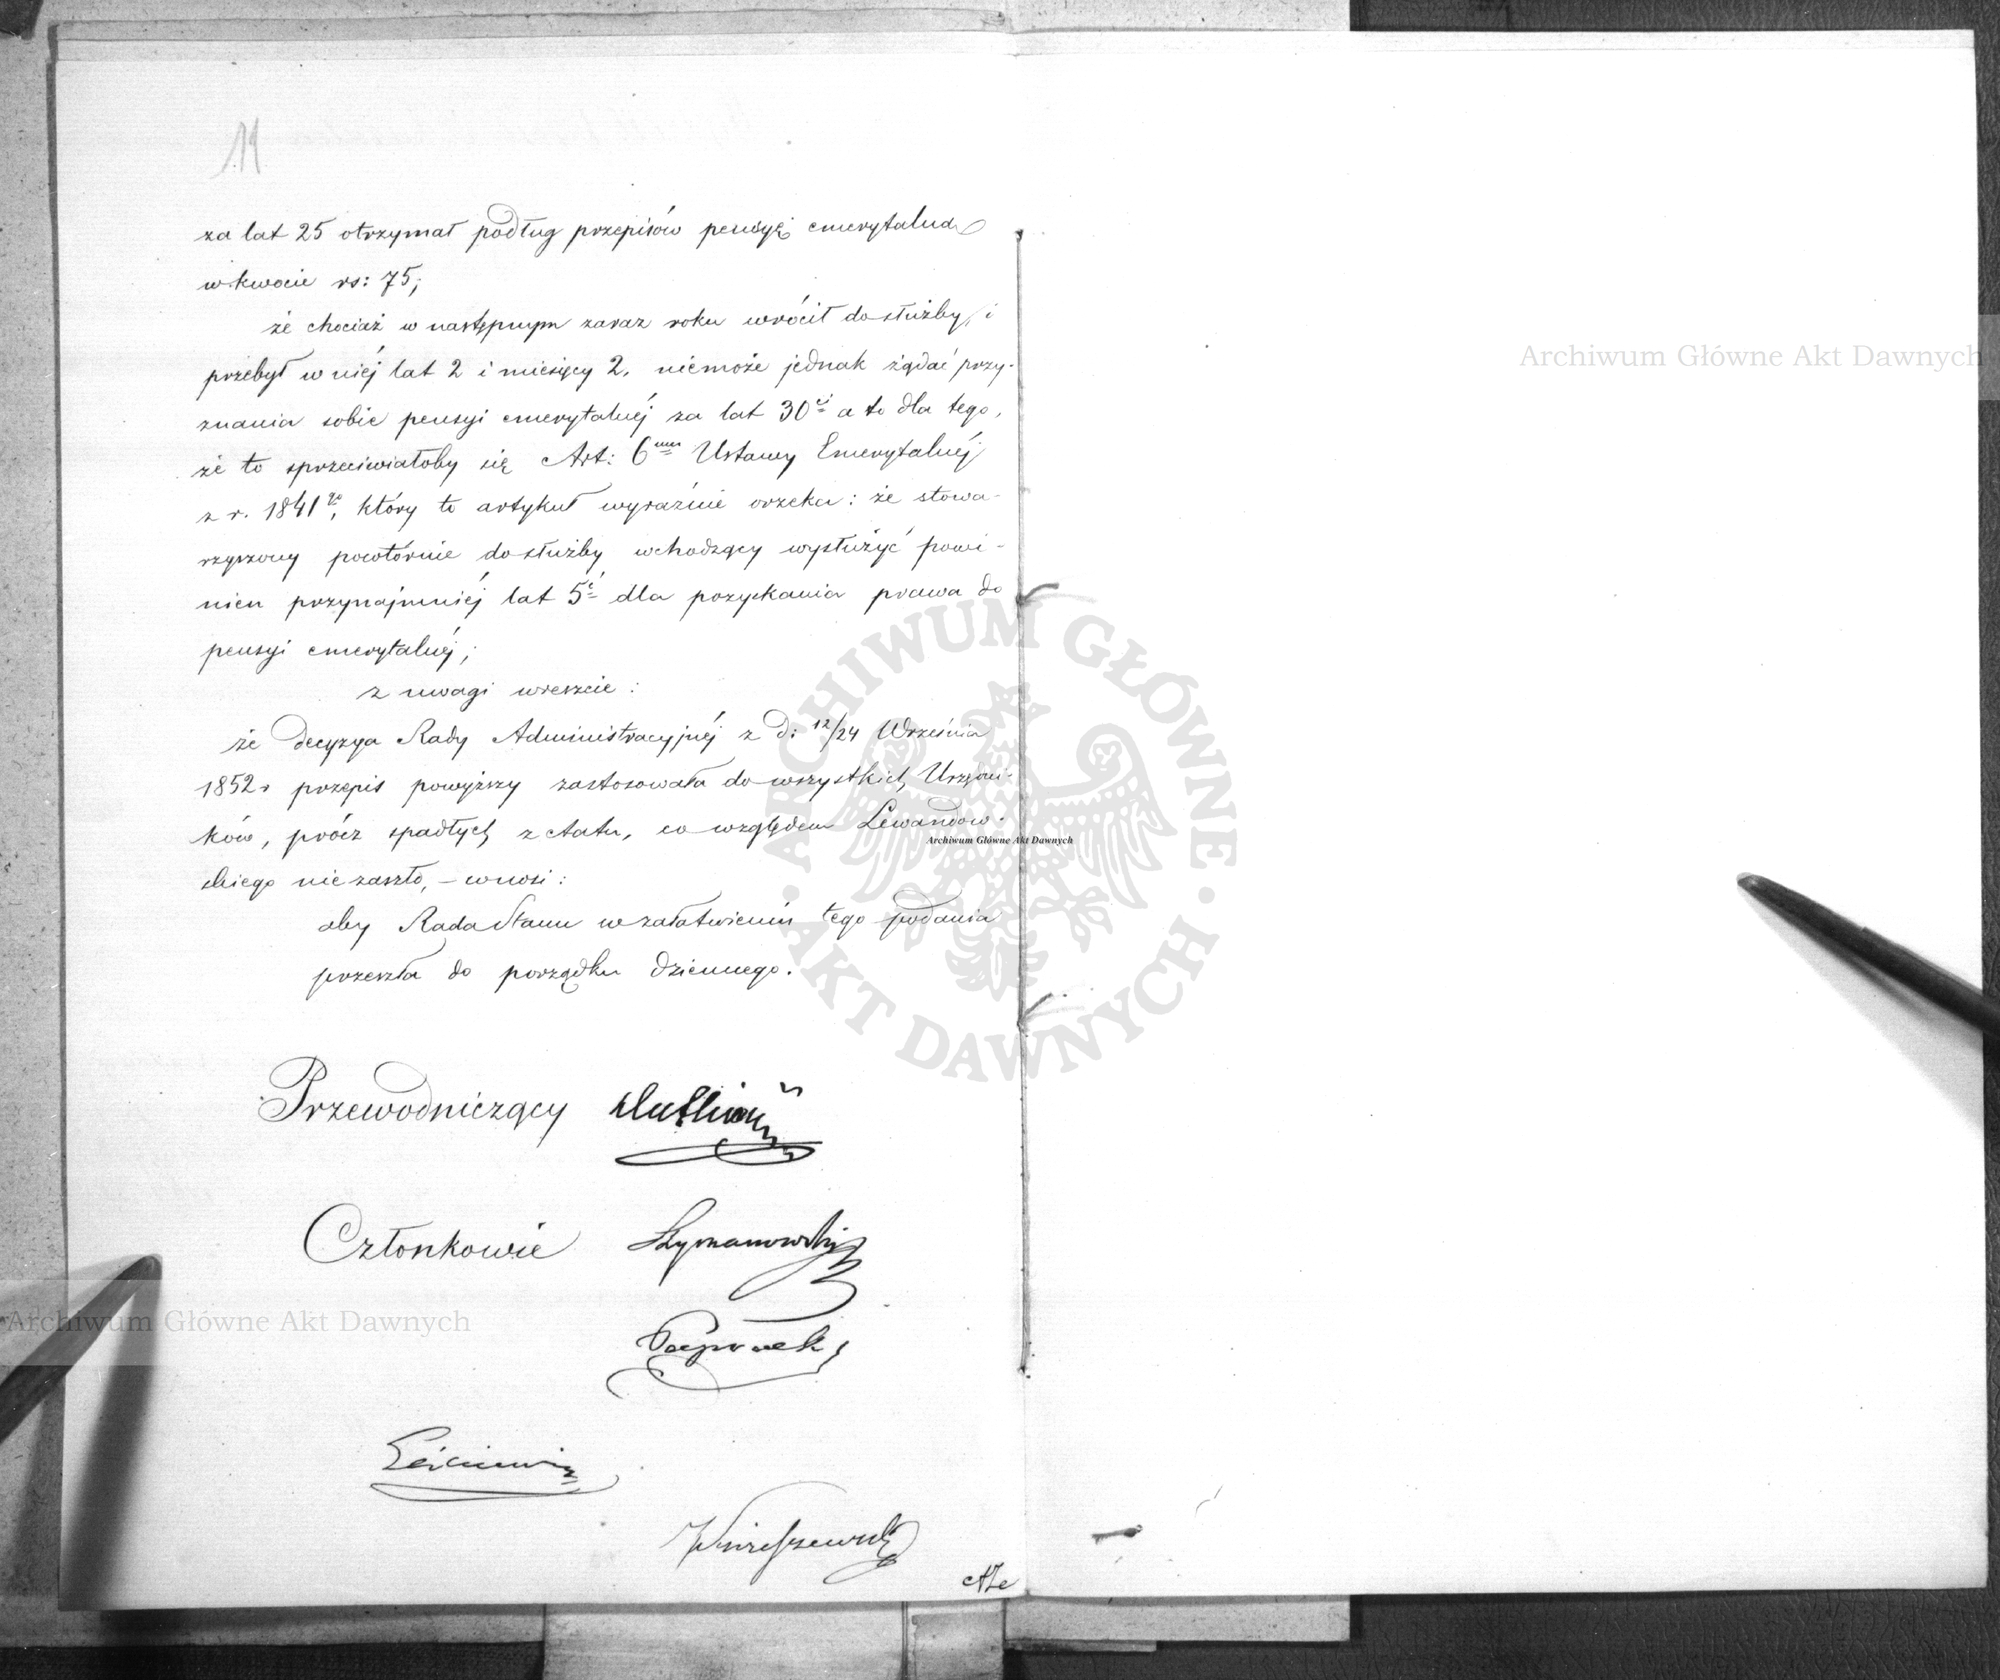 za lat 25 otrzymał podług przepisów pensyę emerytalną
w kwocie rs: 75;
że chociaż w następnym zaraz roku wrócił do służby, i
przebył w niéj lat 2 i miesięcy 2, niemoże jednak żądać przy-
znania sobie pensyi emerytalnéj za lat 30ci a to dla tego,
że to sprzeciwiałoby się Art: 6mu Ustawy Emerytalnéj
z r. 1841go, który to artykuł wyraźnie orzeka: że stowa-
rzyszony powtórnie do służby wchodzący wysłużyć powi-
nien przynajmniéj lat 5ć dla pozyskania prawa do
pensyi emerytalnéj;
z uwagi wreszcie:
że decyzya Rady Administracyjnéj z d: 12/24 Września
1852 r przepis powyższy zastosowała do wszystkich Urzędni-
ków, prócz spadłych z etatu, co względem Lewandow-
skiego nie zaszło, – wnosi:
aby Rada Stanu w załatwieniu tego podania
przeszła do porządku dziennego.
Przewodniczący
Członkowie Szymanowski
Archiwum Główne Akt Dawnych
Archiwum Główne Akt Dawnych
Archiwum Główne Akt Dawnych
ARCHIWUM GŁÓWNE · AKT DAWNYCH ·